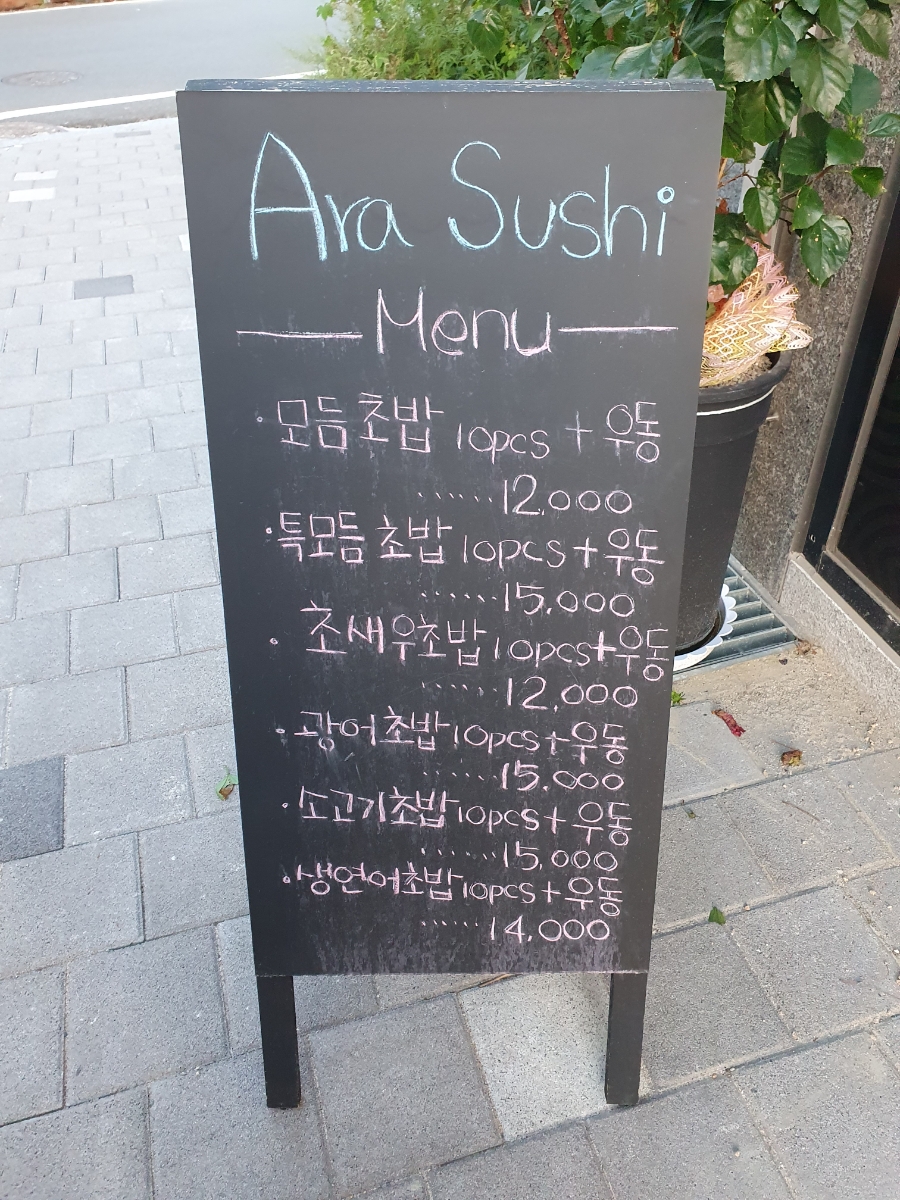 Ara Sushi
Menu
· 모듬초밥 10pcs + 우동
....... 12.000
· 특모듬초밥 10pcs + 우동
....... 15.000
· 초새우초밥 10pcs + 우동
....... 12.000
· 광어초밥 10pcs + 우동
....... 15.000
· 소고기초밥 10pcs + 우동
....... 15,000
· 생연어초밥 10pcs + 우동
....... 14.000